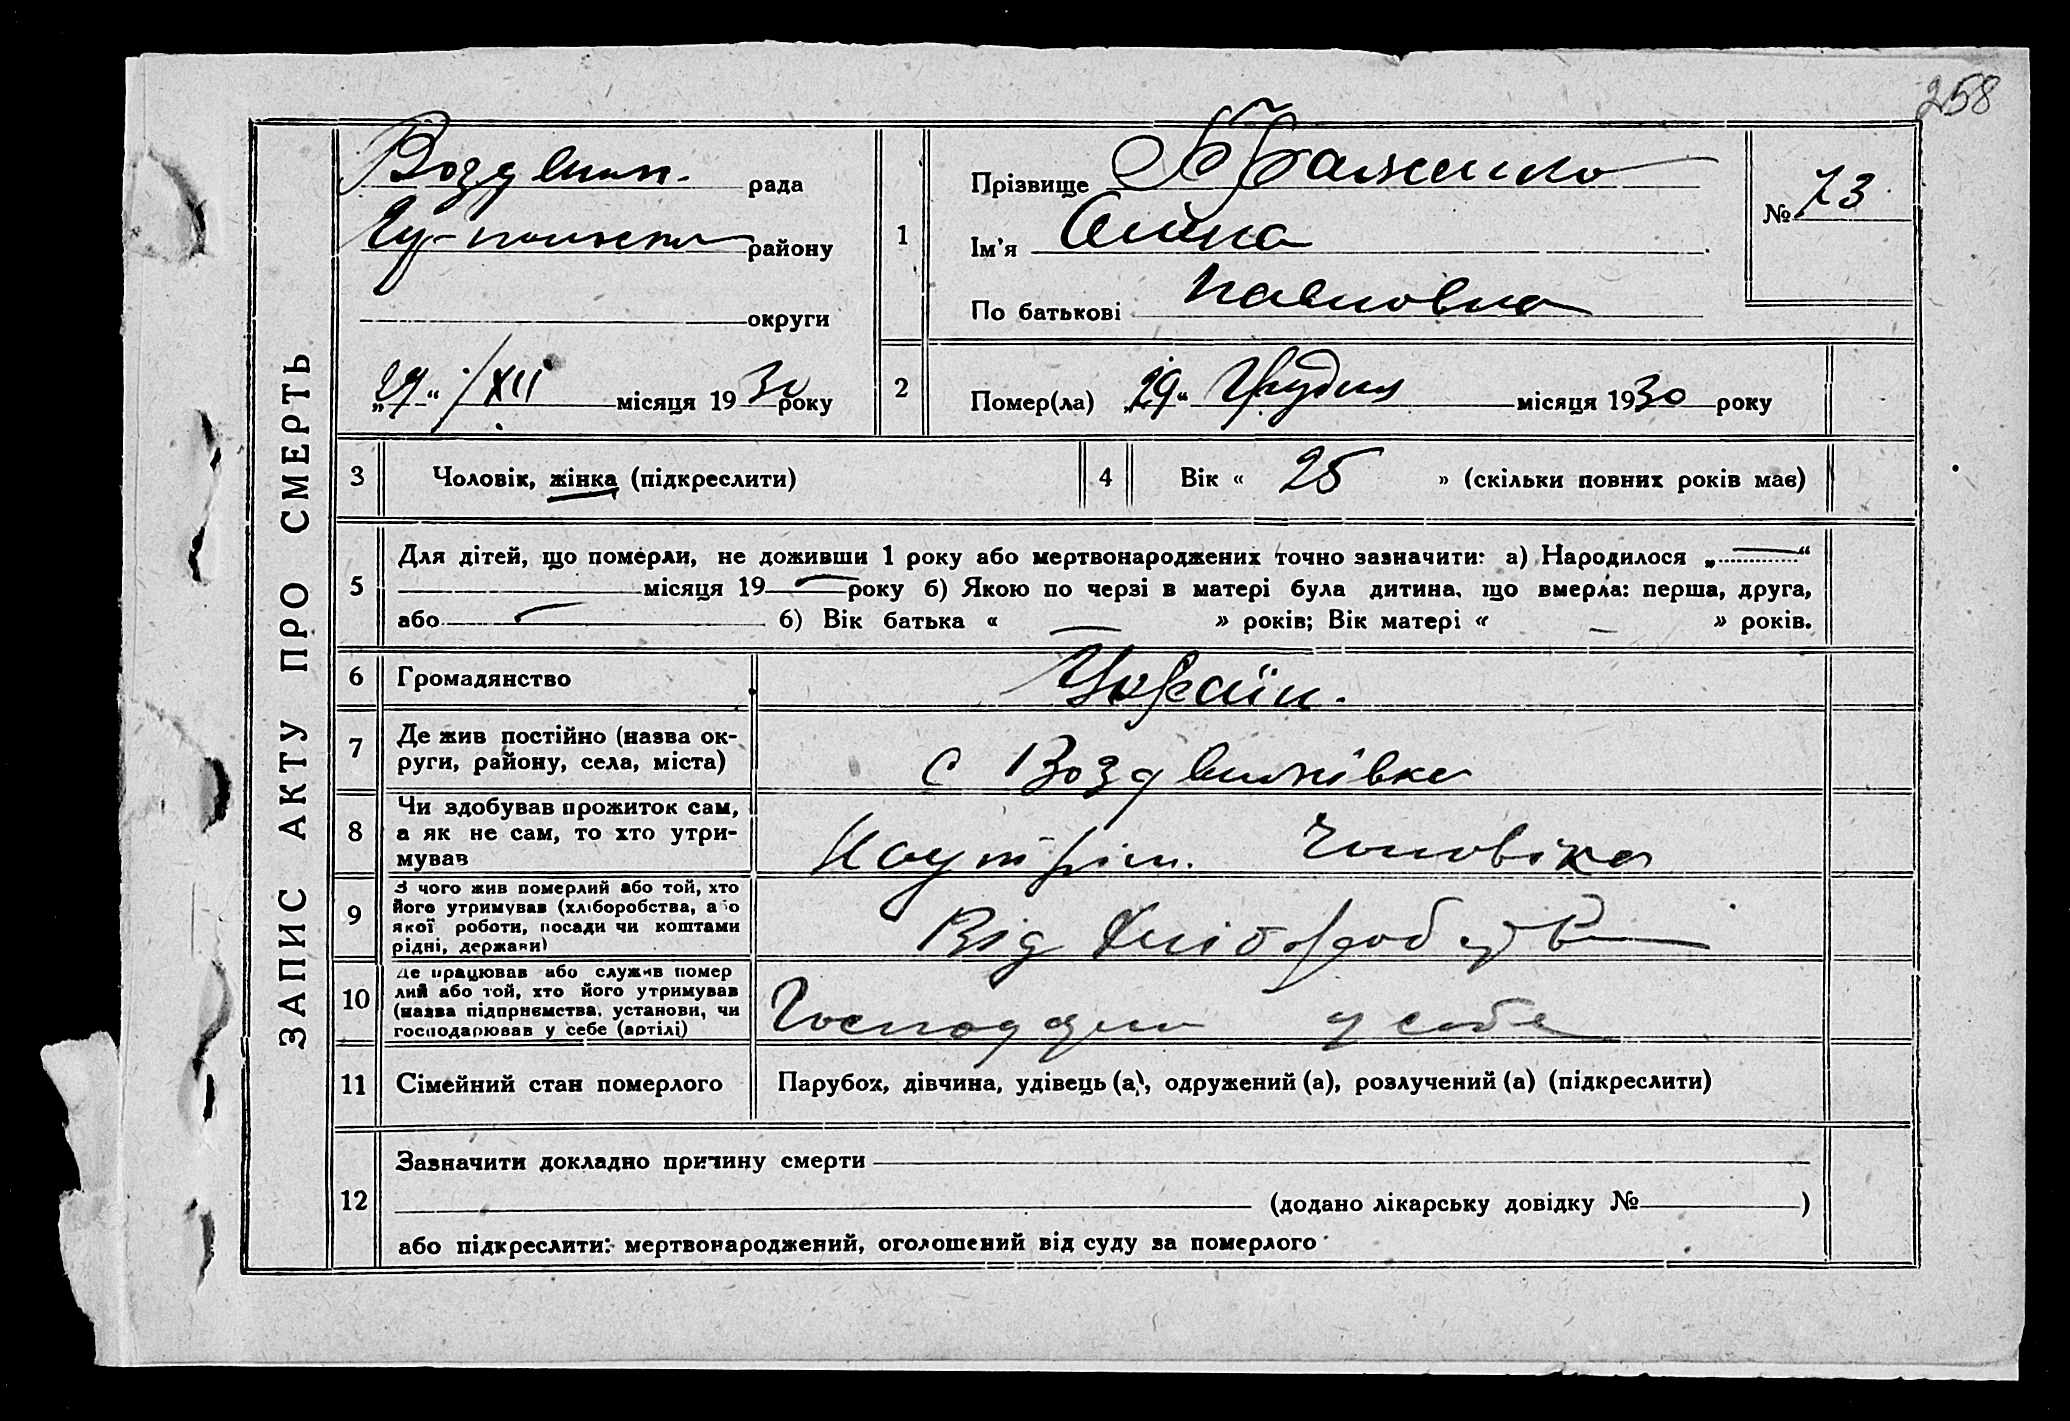 258
ЗАПИС АКТУ ПРО СМЕРТЬ
Воздвиж. рада
Гу-польськ району
округи
„29“ /XII місяця 1930 року
1
Прізвище
Ім'я Анна
По батькові Павловна
№ 73
2
Помер(ла) „29“ Грудня місяця 1930 року
3 Чоловік, жінка (підкреслити)
4 Вік « 25 » (скільки повних років мав)
5
Для дітей, що померли, не доживши 1 року або мертвонароджених точно зазначити: а) Народилося „ — “
місяця 19 — року б) Якою по черзі в матері була дитина, що вмерла: перша, друга,
або — б) Вік батька « — » років; Вік матері « — » років.
6 Громадянство Україн.
7 Де жив постійно (назва ок-
руги, району, села, міста)
с Воздвижівка
8 Чи здобував прожиток сам,
а як не сам, то хто утри-
мував
На утрім. Чоловіка
9 З чого жив померлий або той, хто
його утримував (хліборобства, або
якої роботи, посади чи коштами
рідні, держави)
Від Хліборобства
10 Де працював або служив помер
лий або той, хто його утримував
(назва підприємства, установи, чи
господарював у себе (артілі)
у себе
11 Сімейний стан померлого Парубок, дівчина, удівець (а), одружений (а), розлучений (а) (підкреслити)
12
Зазначити докладно причину смерти
(додано лікарську довідку № )
або підкреслити: мертвонароджений, оголошений від суду за померлого